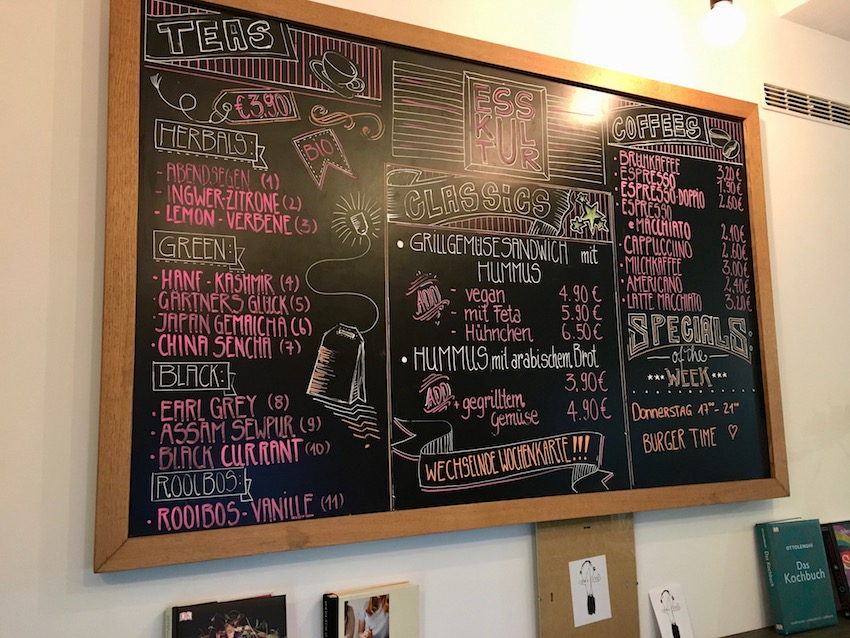 TEAS
€3.90
BIO
HERBALS:
- ABENDSEGEN (1)
- INGWER-ZITRONE (2)
- LEMON - VERBENE (3)
GREEN:
· HANF - KASHMIR (4)
· GÄRTNERS GLÜCK (5)
· JAPAN GEMAICHA (6)
· CHINA SENCHA (7)
BLACK:
· EARL GREY (8)
· ASSAM SEWPUR (9)
· BLACK CURRANT (10)
ROOIBOS:
· ROOIBOS - VANILLE (11)
ESS
KUL
TUR
CLASSICS
• GRILLGEMÜSESANDWICH mit
HUMMUS
ADD
- vegan 4.90 €
- mit Feta 5.90 €
- Hühnchen 6.50 €
• HUMMUS mit arabischem Brot
3,90 €
ADD
+ gegrilltem
Gemüse 4.90 €
WECHSELNDE WOCHENKARTE!!!
COFFEES
• BRÜHKAFFEE 3.20 €
ESPRESSO 1,90 €
ESPRESSO-DOPPIO 2.60 €
ESPRESSO
MACCHIATO 2.10 €
CAPPUCCINO 2.60 €
MILCHKAFFEE 3.00 €
AMERICANO 2,40 €
LATTE MACCHIATO 3.20 €
SPECIALS
of the
WEEK
DONNERSTAG 17⁰⁰ - 21⁰⁰
BURGER TIME ♡
DK
OTTOLENGHI
Das
Kochbuch